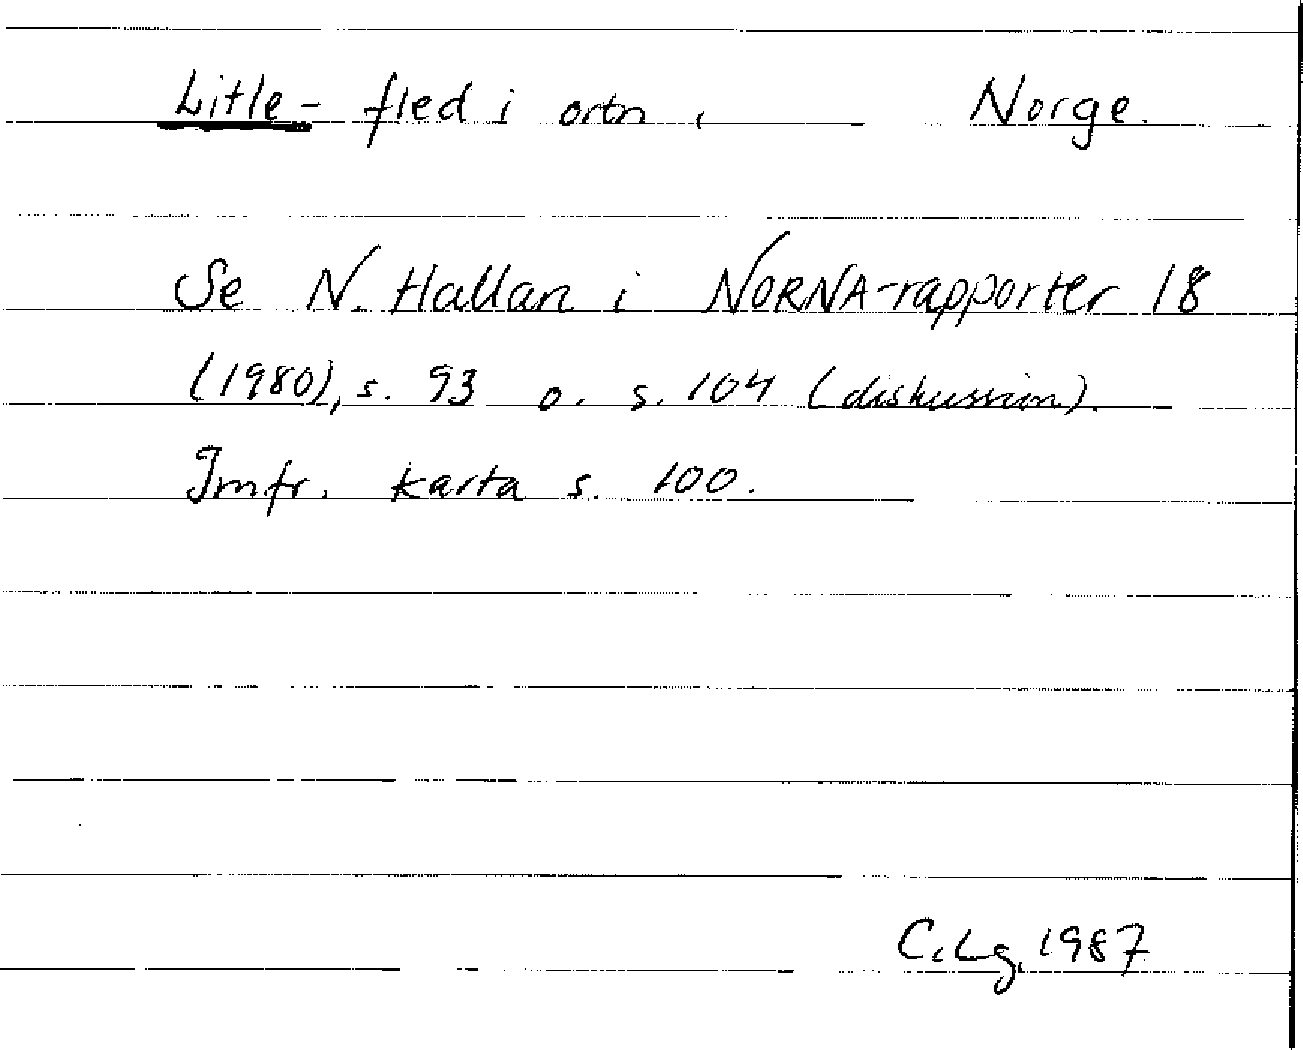 Litle- fled i ortn, Norge.
Se N. Hallan i NORNA-rapporter 18
(1980), s. 93 o. s. 104 (diskussion).
Jmfr. karta s. 100.
C.Lg. 1987